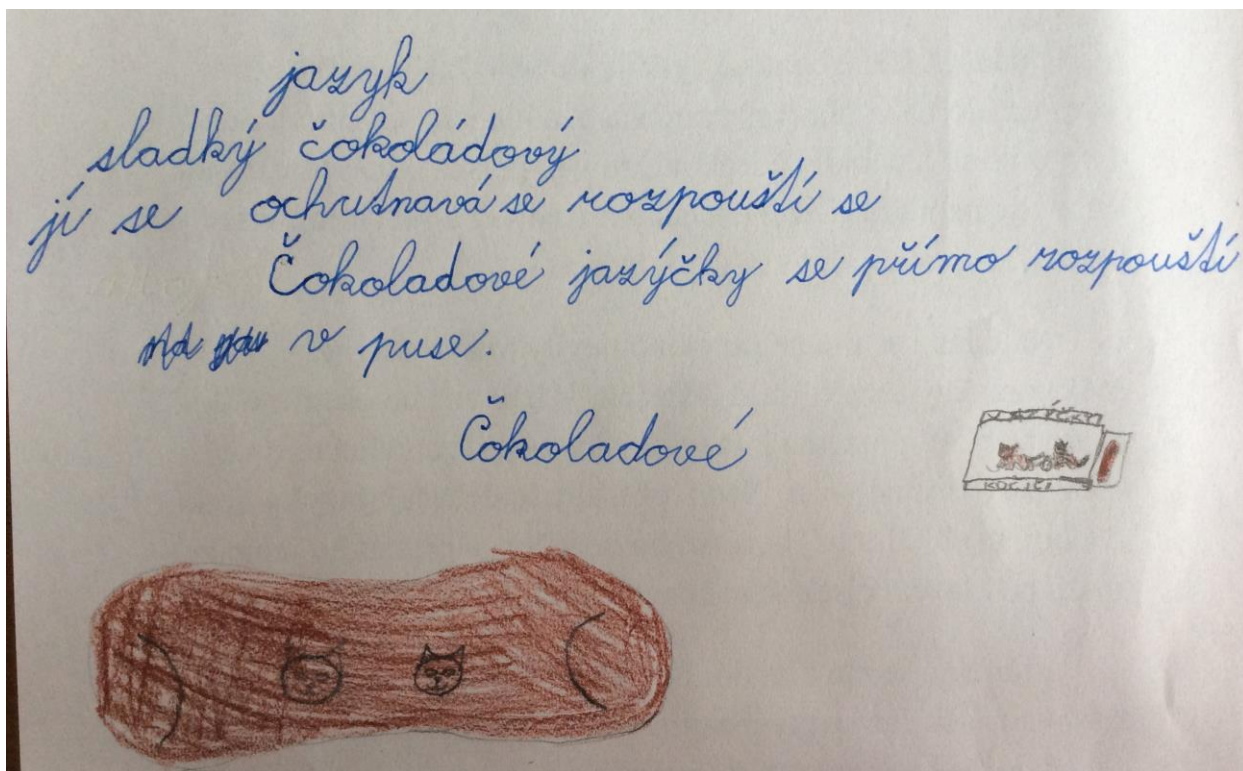 jazyk
sladký čokoládový
jí se ochutnavá se rozpouští se
Čokoladové jazýčky se přímo rozpouští
v puse.
Čokoladové
JAZÝČKY
KOČIČÍ